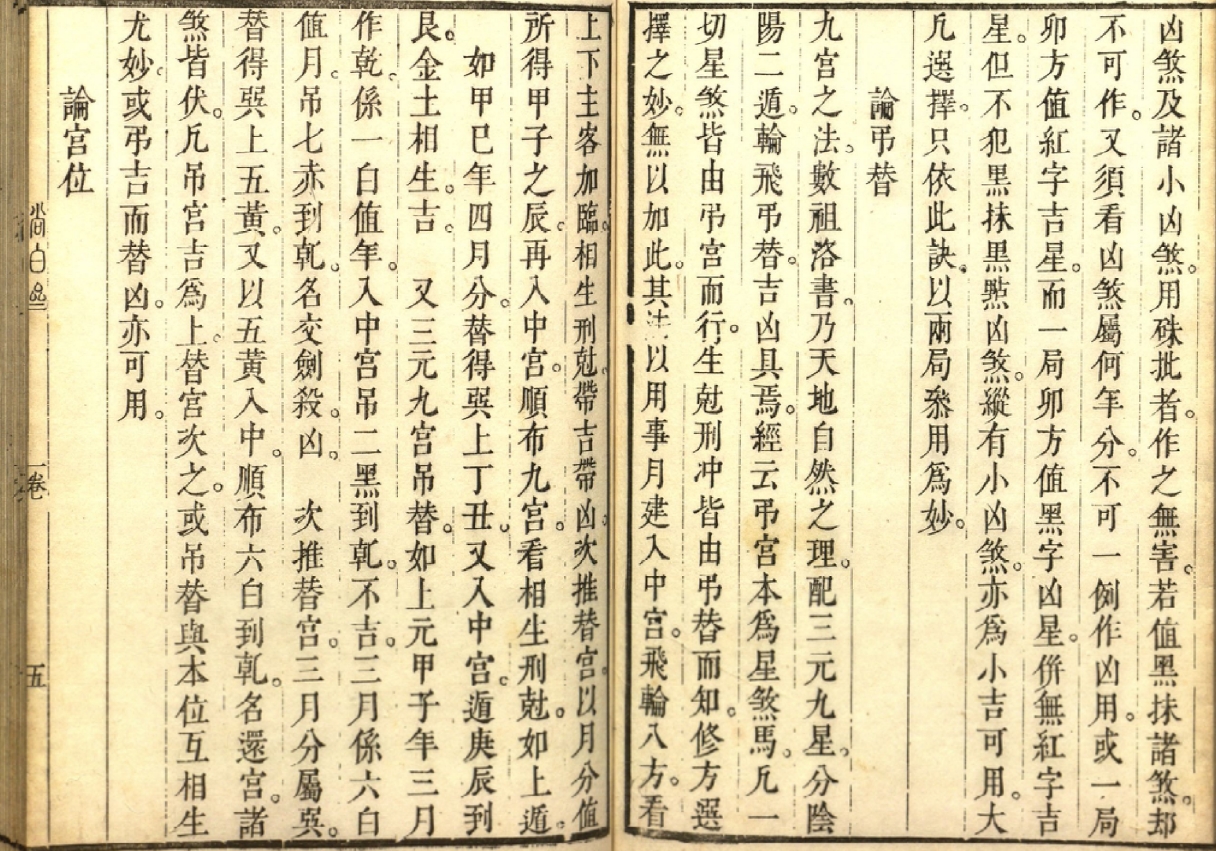 凶煞及諸小凶煞。用硃批者。作之無害。若值黑抹諸煞。却
不可作。又須看凶煞屬何年分。不可一例作凶用。或一局
卯方值紅字吉星。而一局卯方值黑字凶星。併無紅字吉
星。但不犯黑抹黑㸃凶煞。縱有小凶煞。亦爲小吉可用。大
凡選擇。只依此訣。以兩局叅用爲妙。
論弔替
九宮之法。數祖洛書。乃天地自然之理。配三元九星。分陰
陽二遁。輪飛弔替。吉凶具焉。經云弔宮本爲星煞馬。凡一
切星煞皆由弔宮而行。生尅刑冲皆由弔替而知。修方選
擇之妙。無以加此。其法以用事月建入中宮。飛輪八方。看
上下主客加臨。相生刑尅。帶吉帶凶。次推替宮。以月分值
所得甲子之辰。再入中宮。順布九宮。看相生刑尅。如上遁。
如甲巳年四月分。替得巽上丁丑。又入中宮。遁庚辰到
艮。金土相生。吉。 又三元九宮吊替。如上元甲子年三月
作乾。係一白值年。入中宮吊二黑到乹。不吉。三月係六白
值月。吊七赤到乹。名交劍殺。凶。 次推替宮。三月分屬巽。
替得巽上五黃。又以五黃入中。順布六白到乹。名還宮。諸
煞皆伏。凡吊宮吉爲上。替宮次之。或吊替與本位互相生
尤妙。或弔吉而替凶。亦可用。
論宮位
卷
五